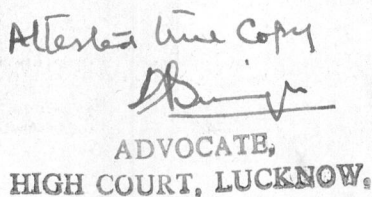 Attested true Copy
ADVOCATE,
HIGH COURT, LUCKNOW.